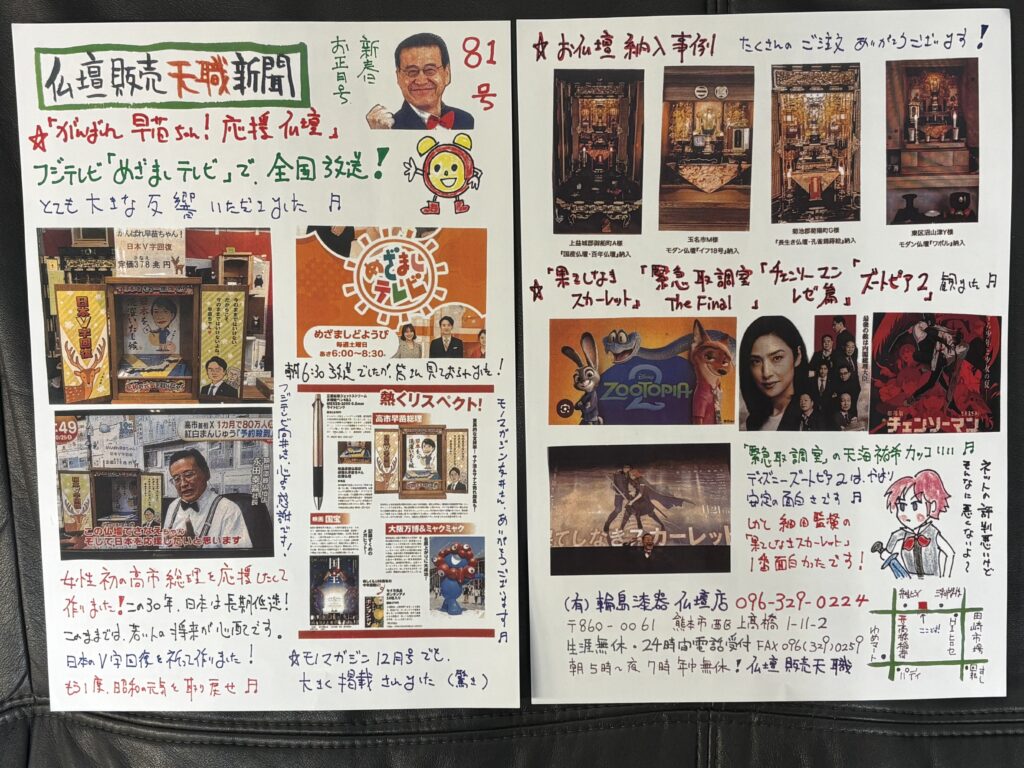 仏壇販売天職新聞
新春に
お正月号
81号
☆「がんばれ 早苗ちゃん！応援仏壇」
フジテレビ「めざましテレビ」で、全国放送！
とても大きな反響いただきました ♬
がんばれ早苗ちゃん！
日本V字回復
定価378兆円
日本V字回復
めざましテレビ
めざましどようび
毎週土曜日
あさ6:00〜8:30
朝6:30放送でしたが、皆さん見ておられました！
:49
高市首相X1カ月で80万人
紅白まんじゅう「予約殺到」
この仏壇でささえちゃん
そして日本を応援したいと思います
熱くリスペクト！
高市早苗総理
映画 国宝
大阪万博&ミャクミャク
国宝
モノマガジン
ありがとうございます ♬
女性初の高市総理を応援したくて
作りました！この30年、日本は長期低迷！
このままでは、若い人の将来が心配です。
日本のV字回復を祈って作りました！
もう1度、昭和の元気を取り戻せ ♬
☆モノマガジン12月号でも、
大きく掲載されました（驚き）
☆お仏壇納入事例 たくさんのご注文ありがとうございます！
上益城郡御船町A様
『国産仏壇・百年仏壇』納入
玉名市M様
モダン仏壇『イフ18号』納入
菊池郡菊陽町G様
『長生き仏壇・孔雀蒔絵』納入
東区沼山津Y様
モダン仏壇『ツボル』納入
☆「果てしなきスカーレット」「緊急取調室 The Final」「チェンソーマン レゼ篇」「ズートピア2」観ました ♬
Disney
ZOOTOPIA
2
最後の敵は内閣総理大臣
チェンソーマン
11.21
果てしなきスカーレット
「緊急取調室」の天海祐希カッコいい ♬
ディズニーズートピア2は、やはり
安定の面白さです ♬
しかし細田監督の
「果てしなきスカーレット」
1番面白かったです！
ネットの評判悪いけど
そんなに悪くないよ〜
（有）輪島漆器仏壇店 096-329-0224
〒860-0061 熊本市西区上高橋1-11-2
生涯無休・24時間電話受付 FAX096(329)0259
朝5時〜夜7時 年中無休！仏壇販売天職
ここだよ！
田崎市場
ゆめマート